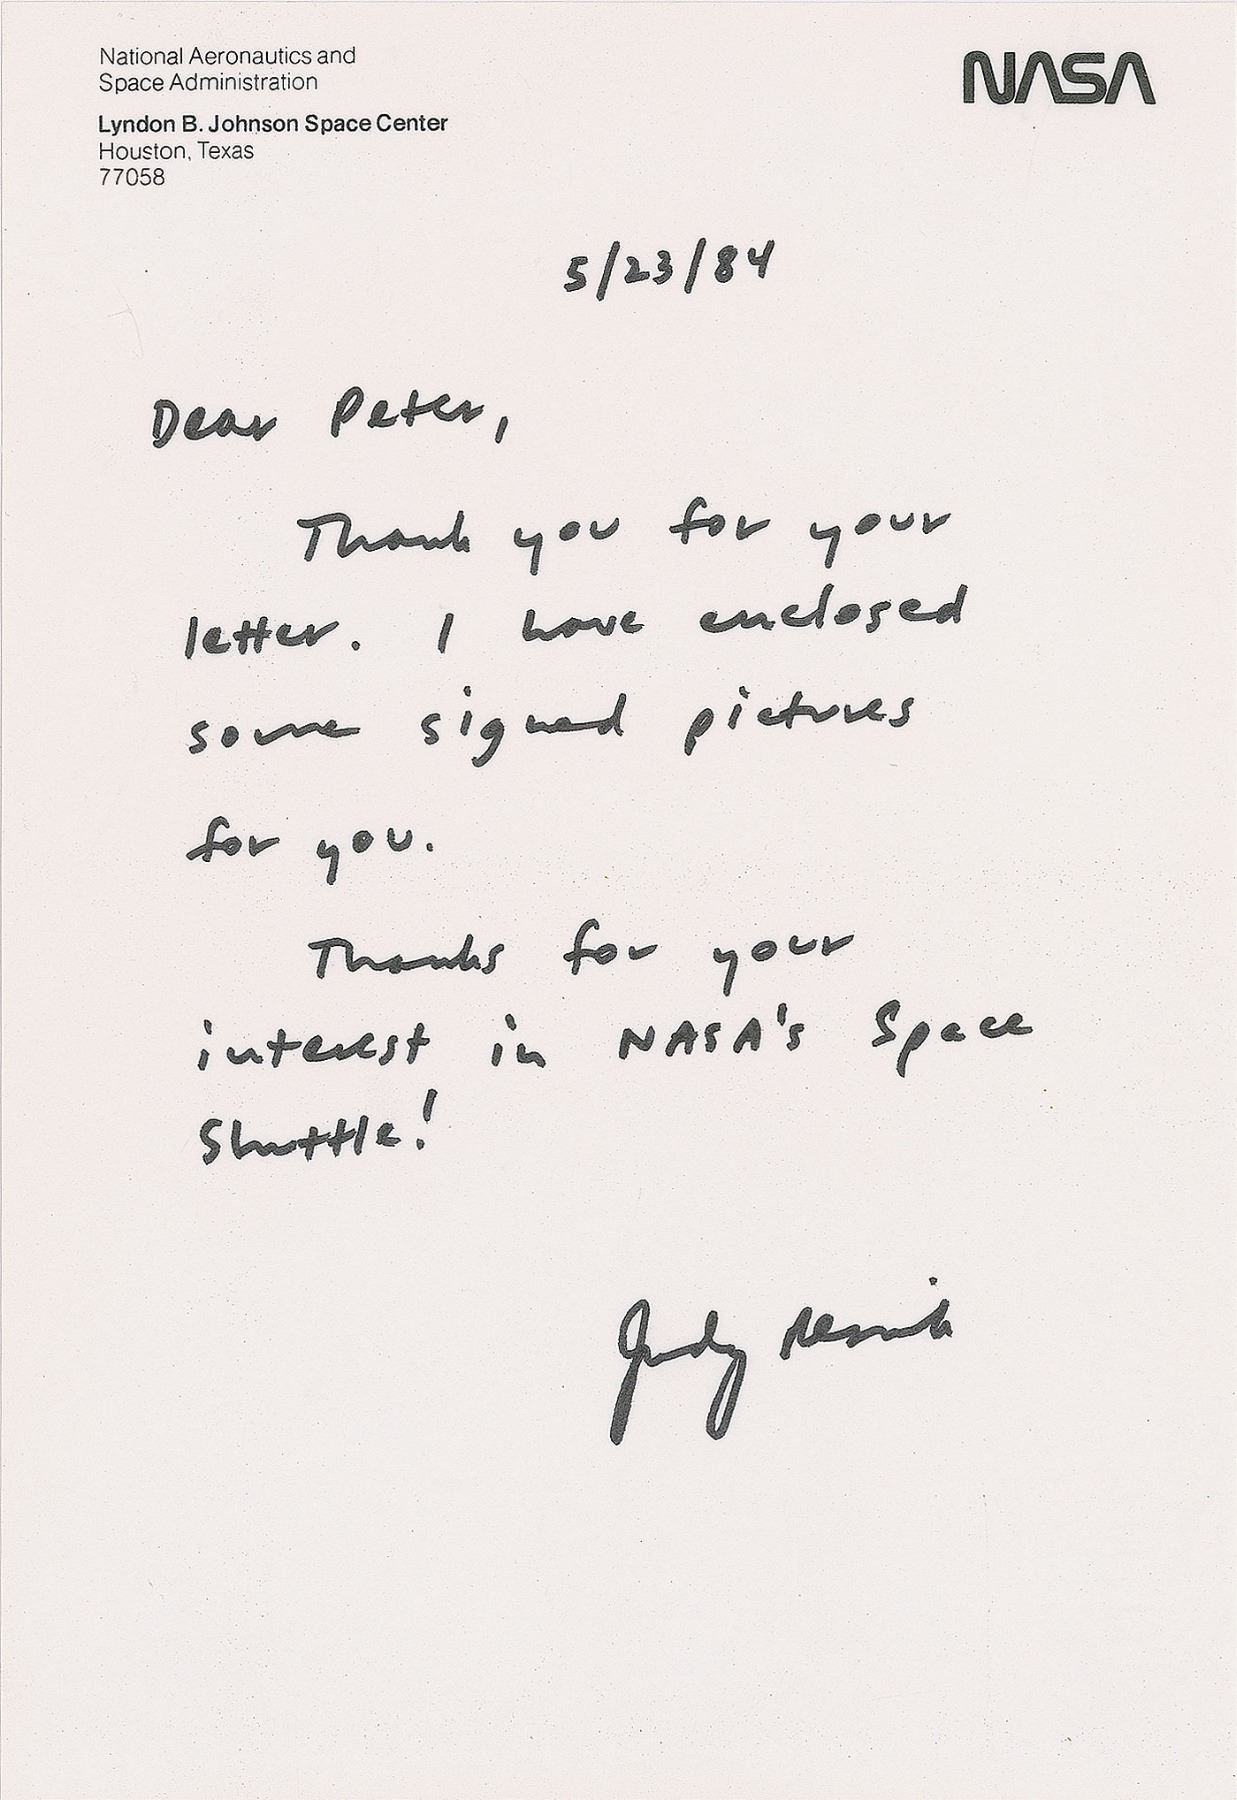 National Aeronautics and
Space Administration
Lyndon B. Johnson Space Center
Houston, Texas
77058
NASA
5/23/84
Dear Peter,
Thank you for your
letter. I have enclosed
some signed pictures
for you.
Thanks for your
interest in NASA's Space
Shuttle!
Judy Resnik